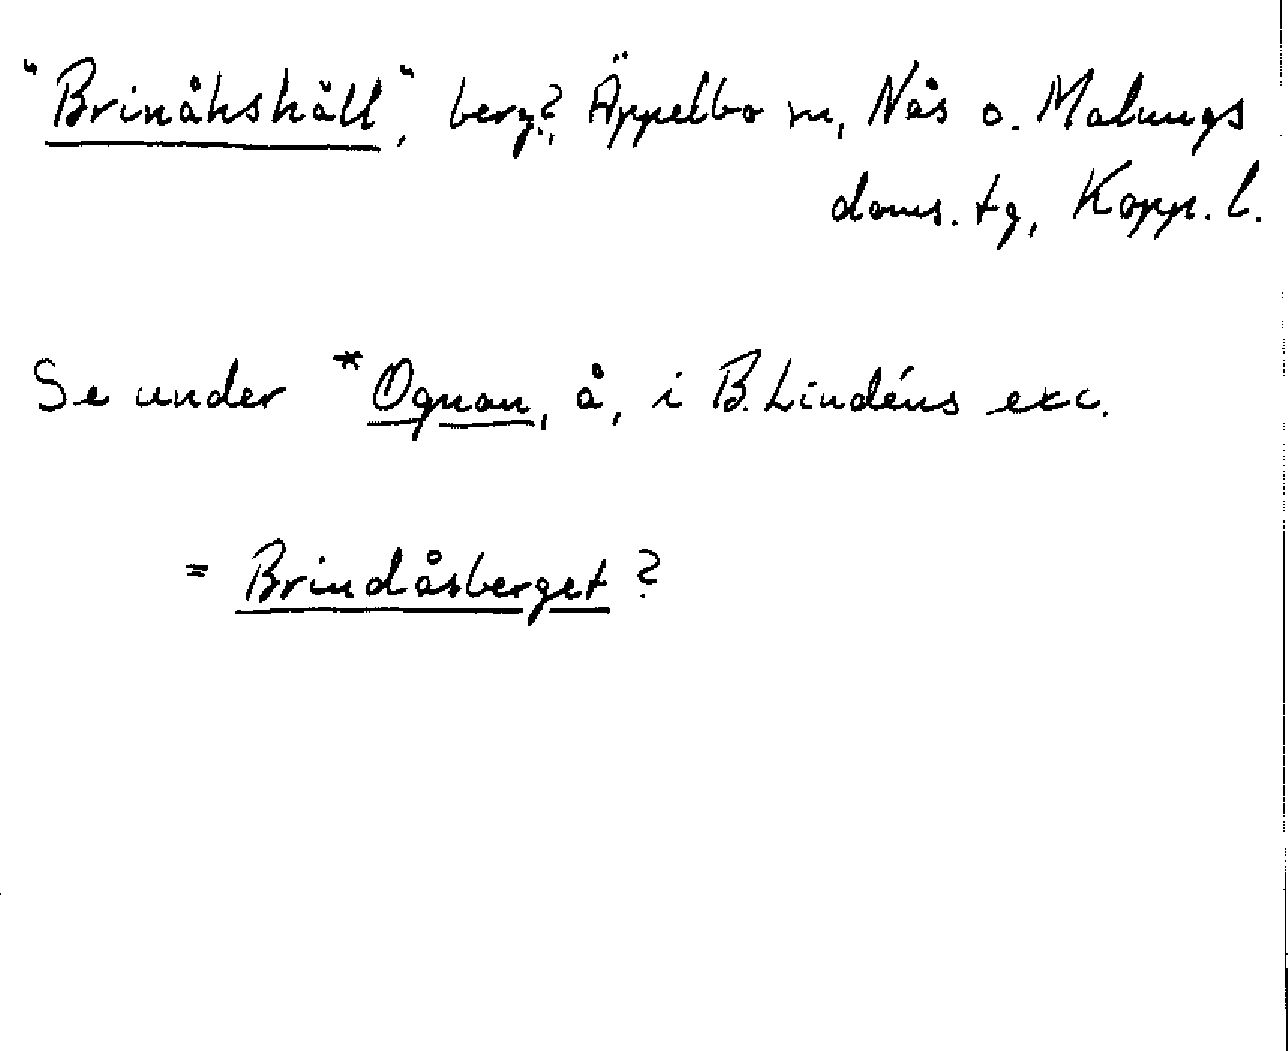 "Brinåhshäll", berg?, Äppelbo sn, Nås o. Malungs
doms. tg, Kopp. l.
Se under *Ognan, å, i B. Lindéns exc.
= Brindåsberget ?